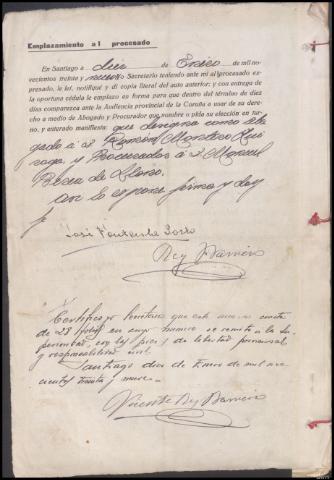 Emplazamiento al procesado
En Santiago a diez de Enero de mil no-
vecientos treinta y nueve Secretario teniendo ante mi al procesado ex-
presado, le leí, notifiqué y di copia literal del auto anterior; y con entrega de
la oportuna cédula le emplazo en forma para que dentro del término de diez
días comparezca ante la Audiencia provincial de la Coruña a usar de su dere-
cho a medio de Abogado y Procurador que nombre o pida su elección en tur-
no, y enterado manifiesta: que designa como abo
gado a D Ramón Montero Qui
roga y Procurador a D Manuel
de Alonso.
Así lo expone firma y doy
fe
José Fontenla
Rey Barreiro
Certifico y testimonio que este sumario consta
de 28 folios en cuyo número se remite a la Su-
perioridad, con las piezas de libertad provisional
y responsabilidad civil.
Santiago diez de Enero de mil nove
cientos treinta y nueve.
Vicente Rey Barreiro